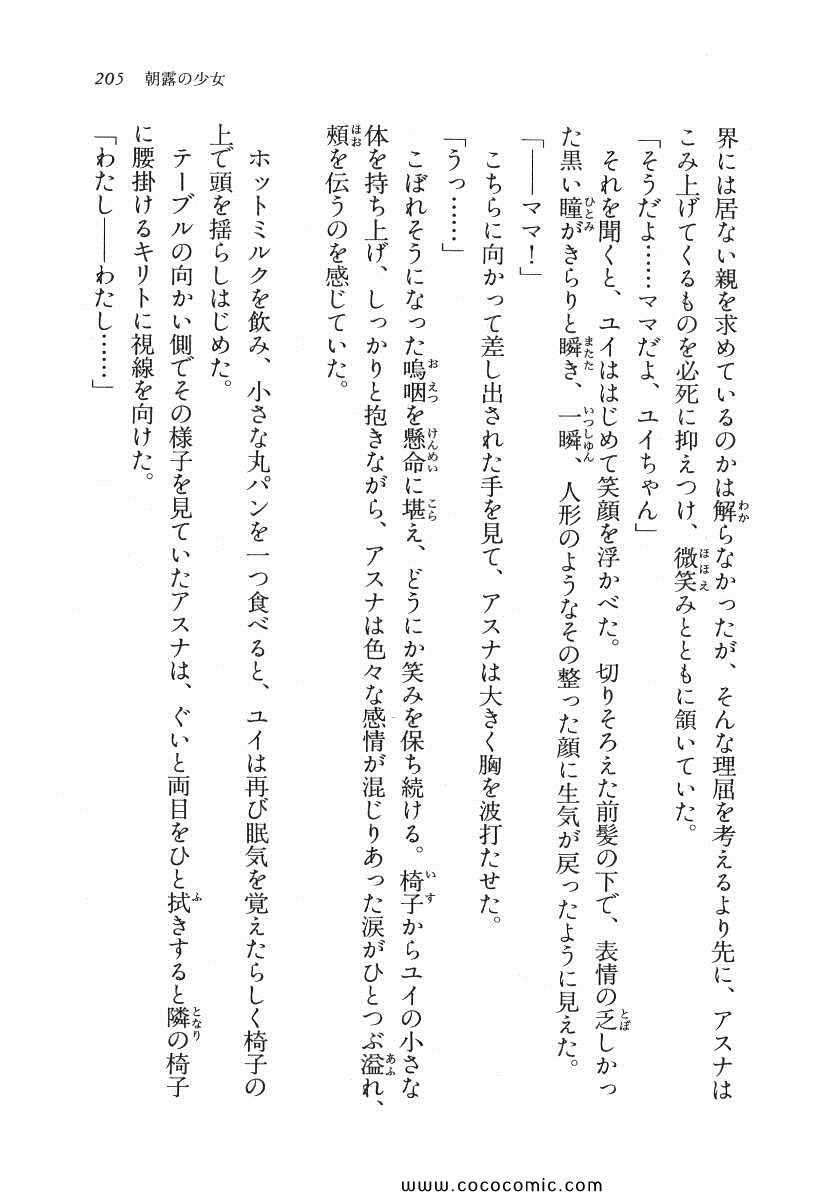 205 朝露の少女
界には居ない親を求めているのかは解らなかったが、そんな理屈を考えるより先に、アスナは
こみ上げてくるものを必死に抑えつけ、微笑みとともに頷いていた。
「そうだよ……ママだよ、ユイちゃん」
それを聞くと、ユイははじめて笑顔を浮かべた。切りそろえた前髪の下で、表情の乏しかっ
た黒い瞳がきらりと瞬き、一瞬、人形のようなその整った顔に生気が戻ったように見えた。
「――ママ！」
こちらに向かって差し出された手を見て、アスナは大きく胸を波打たせた。
「うっ……」
こぼれそうになった嗚咽を懸命に堪え、どうにか笑みを保ち続ける。椅子からユイの小さな
体を持ち上げ、しっかりと抱きながら、アスナは色々な感情が混じりあった涙がひとつぶ溢れ、
頬を伝うのを感じていた。
ホットミルクを飲み、小さな丸パンを一つ食べると、ユイは再び眠気を覚えたらしく椅子の
上で頭を揺らしはじめた。
テーブルの向かい側でその様子を見ていたアスナは、ぐいと両目をひと拭きすると隣の椅子
に腰掛けるキリトに視線を向けた。
「わたし――わたし……」
www.cococomic.com/